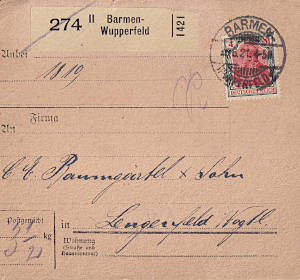 274 II Barmen-
Wupperfeld
1421
BARMEN
Anbei
1819
Firma
An
C. E. Baumgärtel & Sohn
Postgewicht
kg
in Lengenfeld i. Vogtl.
Wohnung
(Straße und
Hausnummer)